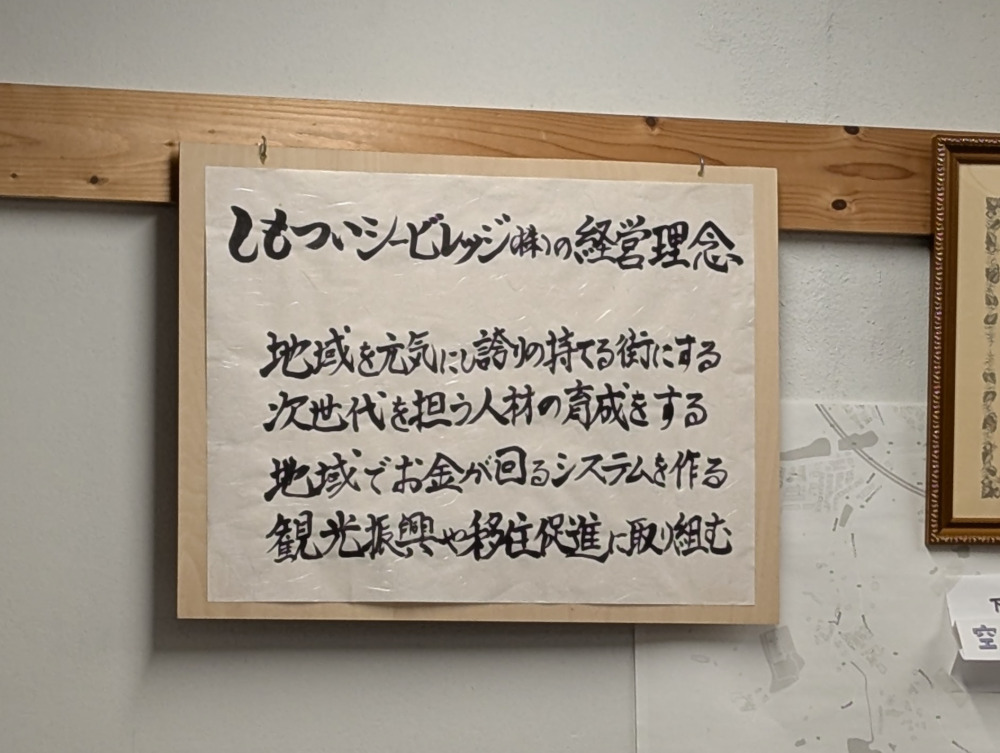 しもついシービレッジ(株)の経営理念
地域を元気にし誇りの持てる街にする
次世代を担う人材の育成をする
地域でお金が回るシステムを作る
観光振興や移住促進に取り組む
空